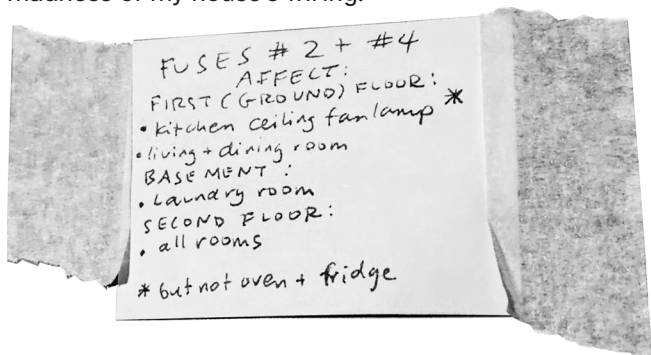 madness of my house's wiring.
FUSES # 2 + #4
AFFECT:
FIRST (GROUND) FLOOR:
• kitchen ceiling fan lamp *
• living + dining room
BASEMENT:
• Laundry room
SECOND FLOOR:
• all rooms
* but not oven + fridge